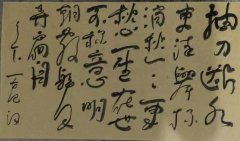 抽刀断水
更流舉杯
消愁々更
愁人生在世
不称意明
朝散髮
弄扁舟